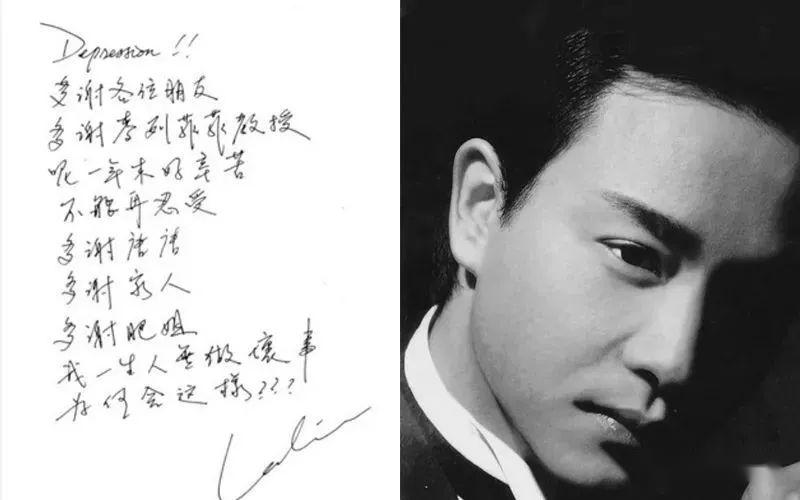 Depression!!
多謝各位朋友
多謝李列菲菲教授
呢一年来好辛苦
不能再忍受
多謝唐唐
多謝家人
多謝肥姐
我一生人無做壞事
为何会这樣???
Leslie